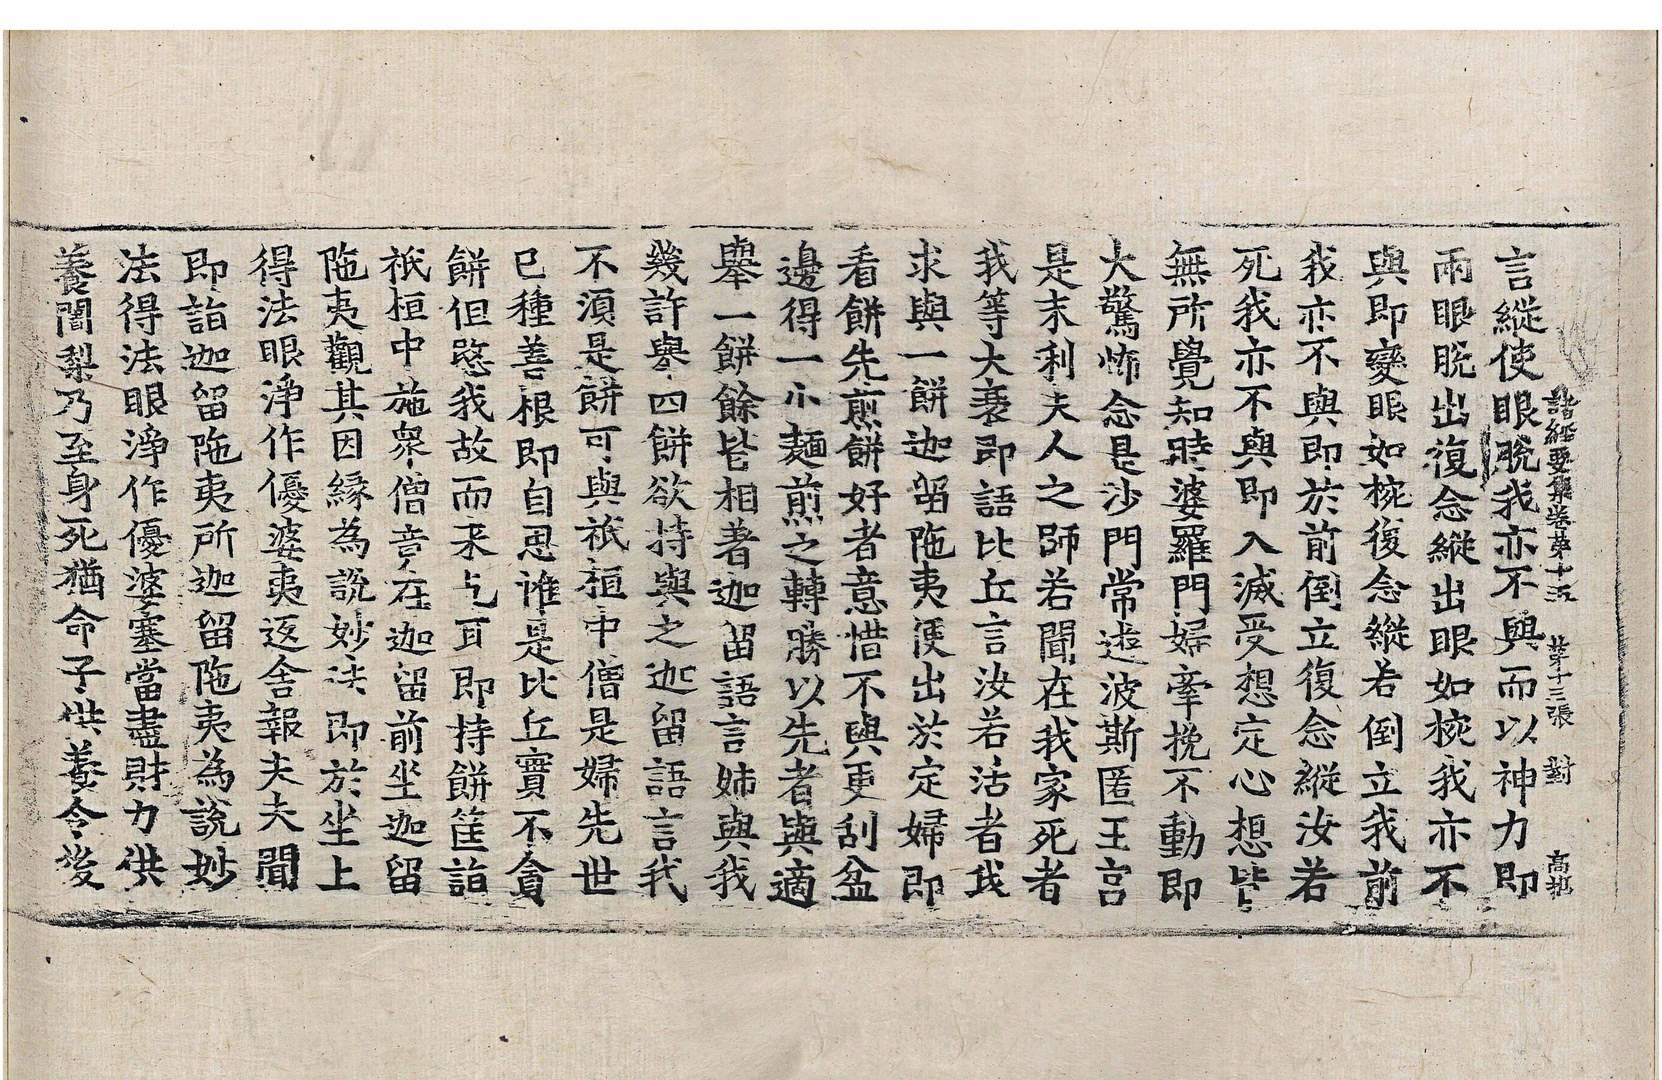 諸經要集卷第十五 第十三張 對
言縱使眼脫我亦不與而以神力即
兩眼脫出復念縱出眼如椀我亦不
與即變眼如椀復念縱若倒立我前
我亦不與即於前倒立復念縱汝若
死我亦不與即入滅受想定心想皆
無所覺知時婆羅門婦牽挽不動即
大驚怖念是沙門常遊波斯匿王宮
是末利夫人之師若聞在我家死者
我等大衰即語比丘言汝若活者我
求與一餅迦留陁夷便出於定婦即
看餅先煎餅好者意惜不與更刮盆
邊得一小麵煎之轉勝以先者與適
舉一餅餘皆相著迦留語言姉與我
幾許舉四餅欲持與之迦留語言我
不湏是餅可與祇桓中僧是婦先世
已種善根即自思惟是比丘實不貪
餅但愍我故而来乞耳即持餅筐詣
祇桓中施衆僧竟在迦留前坐迦留
陁夷觀其因緣為說妙法即於坐上
得法眼淨作優婆夷返舍報夫夫聞
即詣迦留陁夷所迦留陁夷為說妙
法得法眼淨作優婆塞當盡財力供
養闍梨乃至身死猶命子供養令後